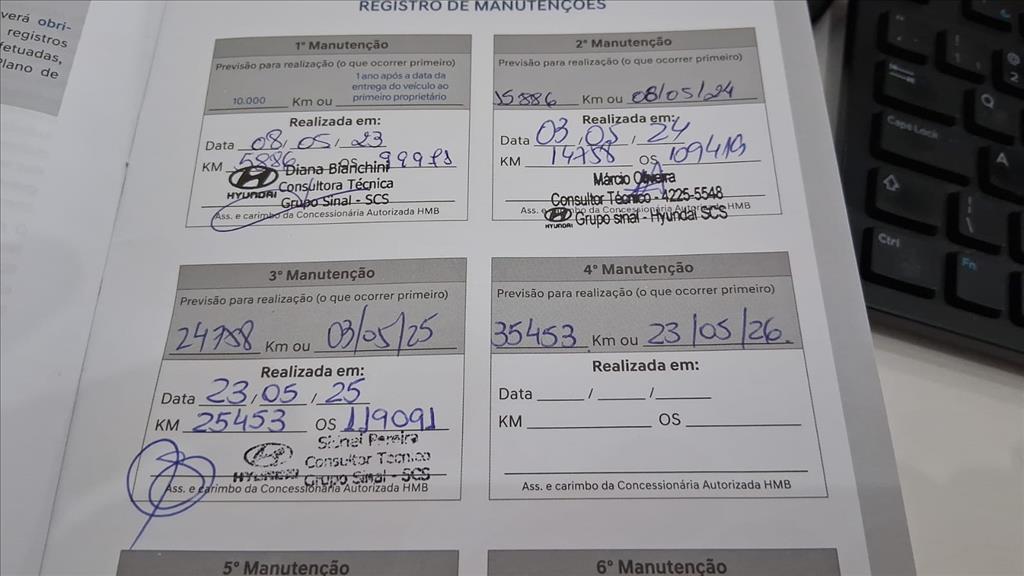 REGISTRO DE MANUTENÇÕES
verá obri-
registros
fetuadas,
lano de
1ª Manutenção
Previsão para realização (o que ocorrer primeiro)
10.000 Km ou 1 ano após a data da
entrega do veículo ao
primeiro proprietário
Realizada em:
Data 08/05/23
KM 5886 OS 99971
Diana Bianchini
HYUNDAI Consultora Técnica
Grupo Sinal - SCS
Ass. e carimbo da Concessionária Autorizada HMB
2ª Manutenção
Previsão para realização (o que ocorrer primeiro)
15886 Km ou 08/05/24
Realizada em:
Data 03/05/24
KM 14758 OS 109419
Márcio Oliveira
Consultor Técnico - 4225-5548
HYUNDAI Grupo sinal - Hyundai SCS
Ass. e carimbo da Concessionária Autorizada HMB
3ª Manutenção
Previsão para realização (o que ocorrer primeiro)
24758 Km ou 03/05/25
Realizada em:
Data 23/05/25
KM 25453 OS 119091
Sidnei Pereira
HYUNDAI Consultor Tecnico
Grupo Sinal - SCS
Ass. e carimbo da Concessionária Autorizada HMB
4ª Manutenção
Previsão para realização (o que ocorrer primeiro)
35453 Km ou 23/05/26.
Realizada em:
Data / /
KM OS
Ass. e carimbo da Concessionária Autorizada HMB
5ª Manutenção
6ª Manutenção
Caps Lock
Q
A
2
Ctrl
Fn